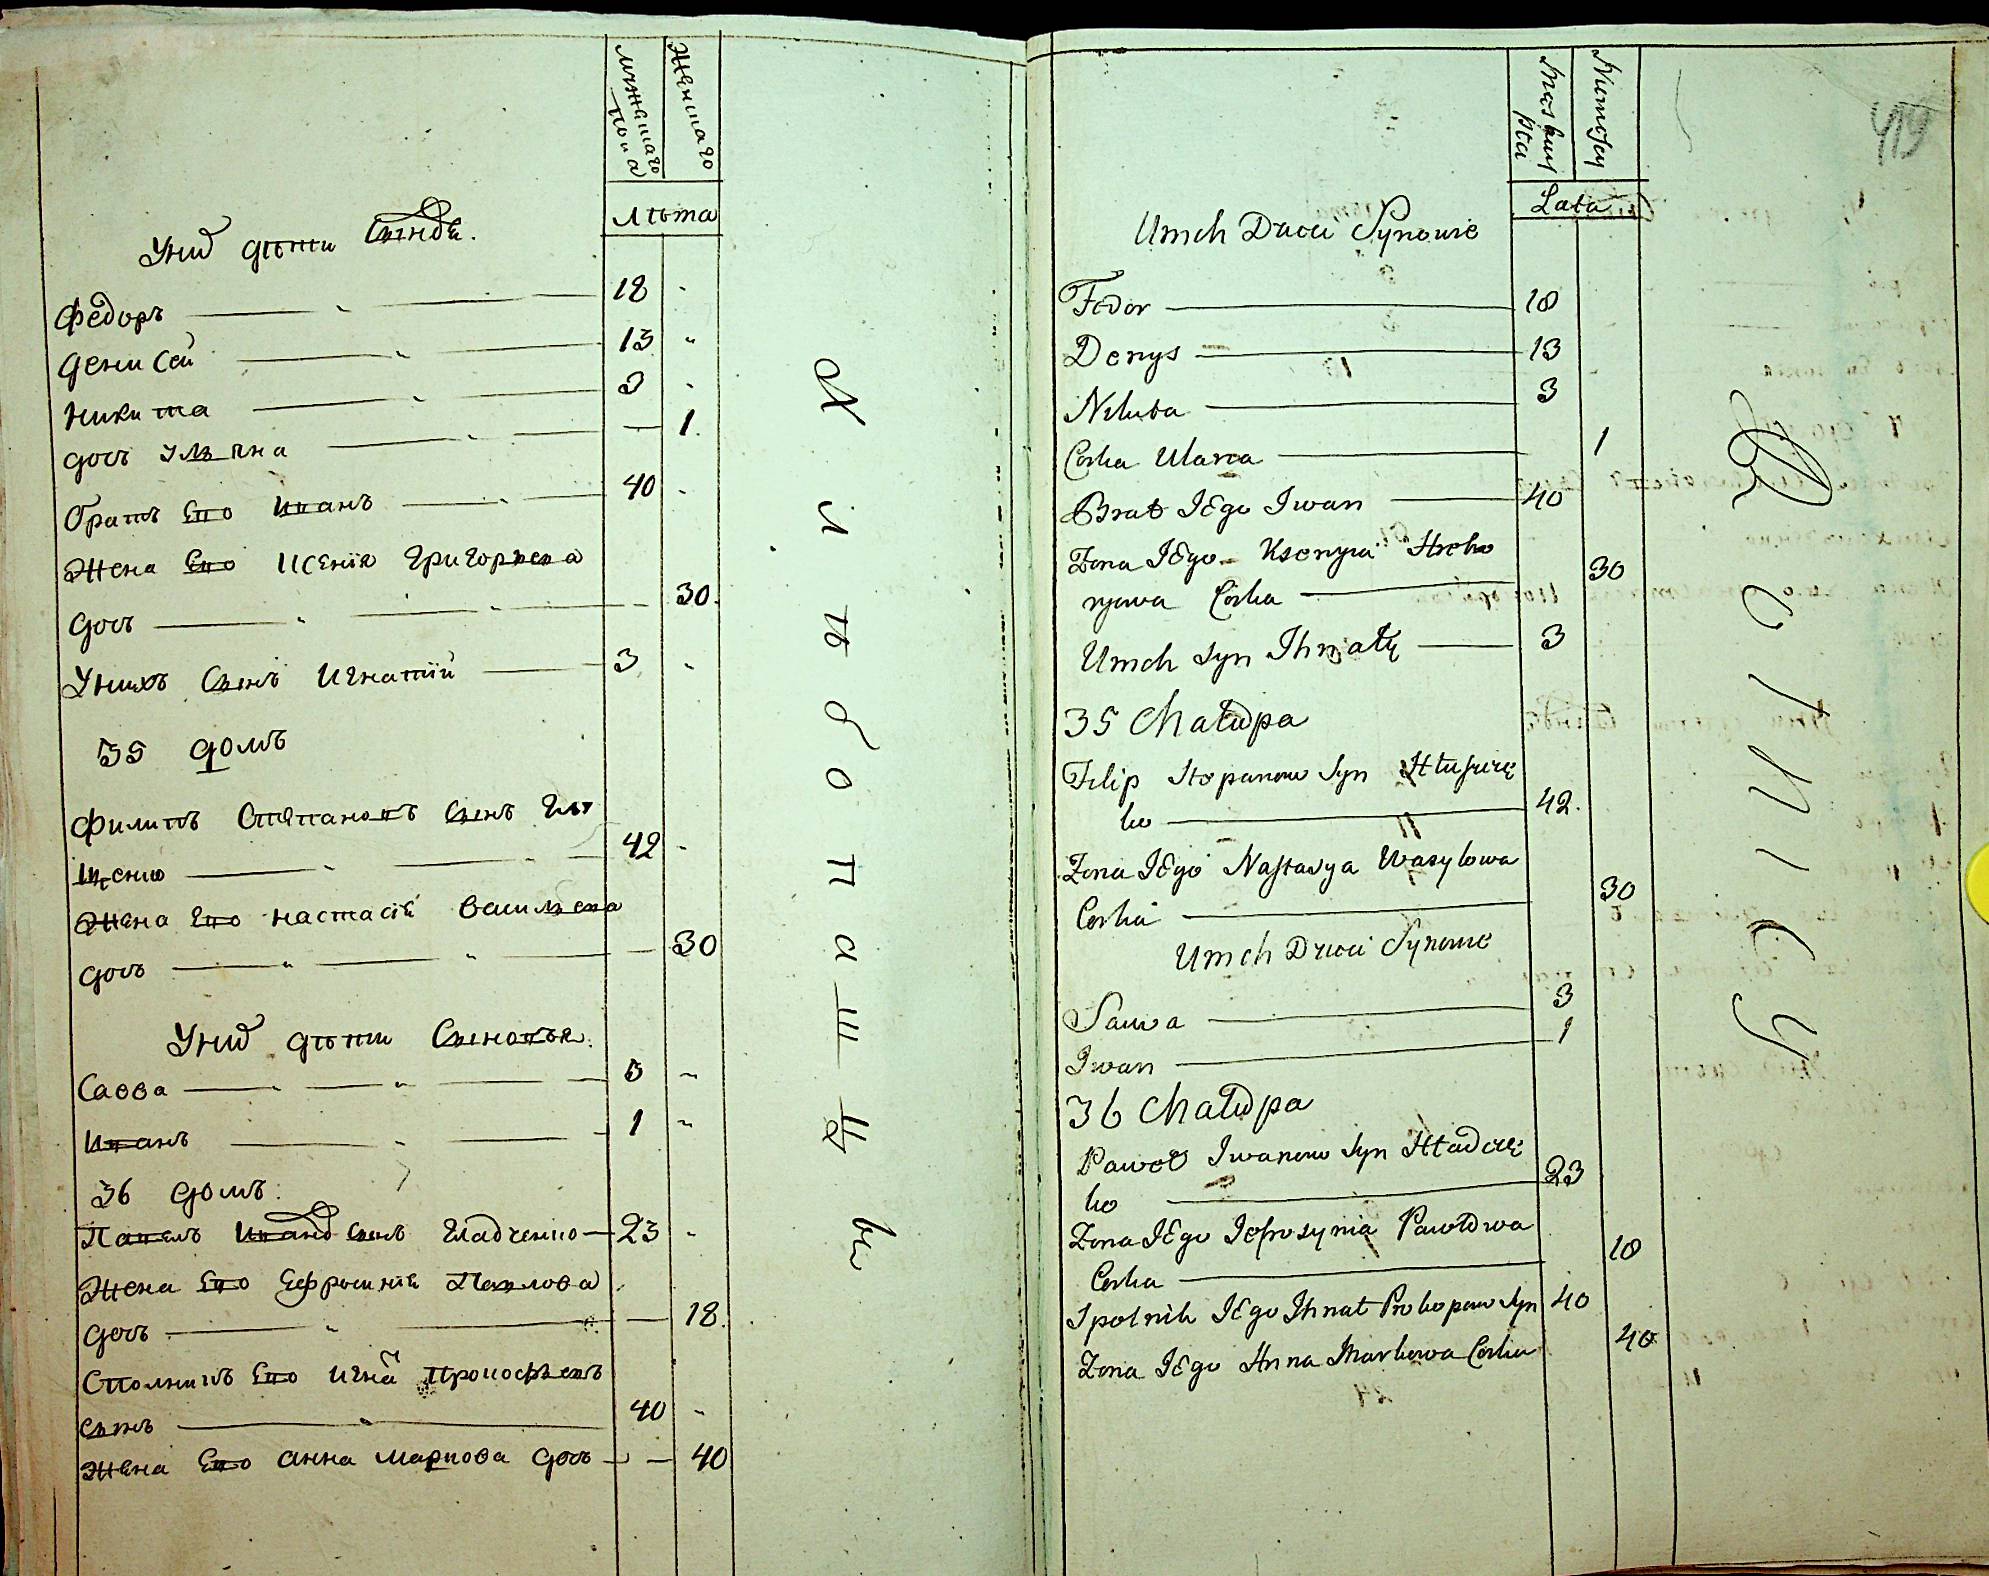 мужескаго пола
Женскаго
Лѣта
Униⷯ дѣти Сыновⷶ.
Федоръ 18
денисей 13
никита 3
дочъ Ульяна 1.
братъ Его Иванъ 40
Жена Его ксенія григорьева
дочъ 30.
Унихъ Сынъ игнатій 3
35 домъ
филипъ Степановъ Сынъ Глу
щенко 42
Жена Его настасія васильева
дочъ 30
Униⷯ дѣти Сыновья.
Савва 3
Иванъ 1
36 домъ.
Павелъ Иваноⷡ Сынъ Гладченко 23
Жена Его Ефросинія Павлова
дочъ 18.
Сполникъ Его игнаⷮ прокофьевъ
сынъ 40
Жена Его анна маркова дочъ 40
Хлѣбопашцы
419
Męskey
Płci
Niewiesciey
Lata
Unich Dzieci Synowie
Fedor 18
Denys 13
Nikita 3
Corka Ulana 1
Brat IEgo Iwan 40
Zona IEgo Ksenyia Hreho
ryowa Córka 30
Unich Syn Ihnaty 3
35 Chałupa
Filip Stepanow Syn Hłuszcze
ko 42.
Zona IEgo Nastasya Wasylowa
Corka 30
Unich Dzieci Synowie
Sawa 3
Iwan 1
36 Chałupa
Paweł Iwanow Syn Hładcze
ko 23
Zona IEgo Jefrosynia Pawłowa
Corka 18
Spolnik IEgo Ihnat Prokopow Syn 40
Zona IEgo Anna Markowa Corka 40
Rolnicy